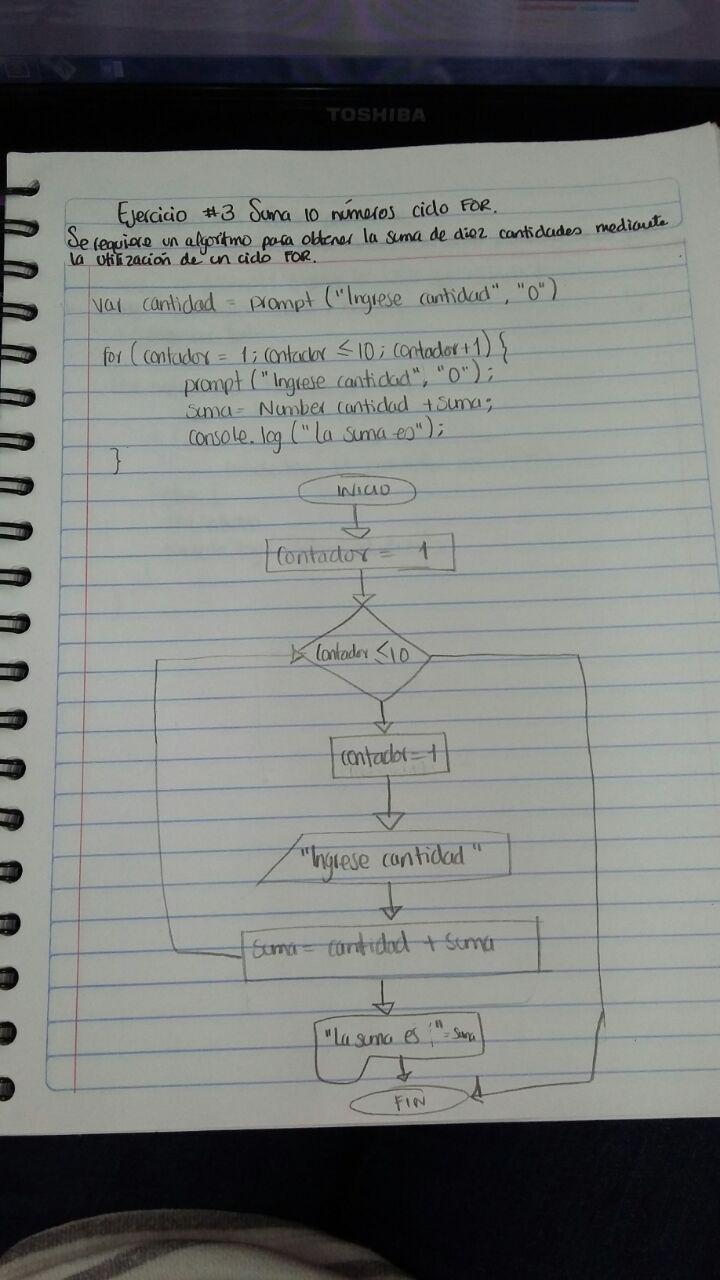 TOSHIBA
Ejercicio #3 Suma 10 números ciclo FOR.
Se requiere un algoritmo para obtener la suma de diez cantidades mediante
la utilización de un ciclo FOR.
var cantidad = prompt ("Ingrese cantidad", "0")
for (contador = 1; contador ≤ 10; contador+1) {
prompt ("Ingrese cantidad", "0");
suma= Number cantidad +suma;
console.log ("la suma es");
}
INICIO
Contador = 1
Contador ≤10
contador=1
"Ingrese cantidad"
suma= cantidad + suma
"La suma es :"=suma
FIN